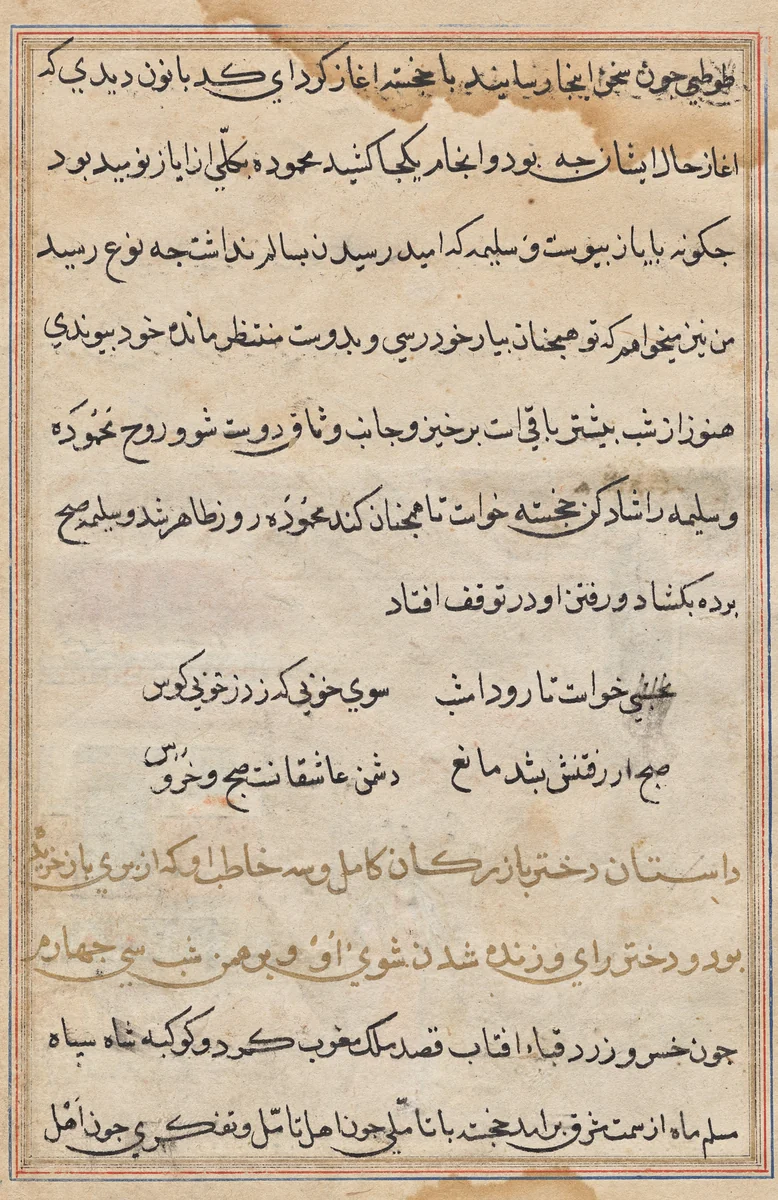 طوطي جون سخن اينجا رسانيد با خجسته اغاز كرد اي كدبانون ديدي كه
اغاز حال ايشان جه بود و انجام يكجا كشيد محموده بكلّي از اياز نوميد بود
جكونه باياز بيوست و سليمه كه اميد رسيدن بسالم نداشت جه نوع رسيد
من نيز ميخواهم كه تو همجنان بيار خود رسي و بدوست منتظر مانده خود بيوندي
هنوز از شب بيشتر باقي است برخيز و جانب وثاق دوست شو و روح محموده
و سليمه را شاد كن خجسته خواست تا همجنان كند محموده روز ظاهر شد و سليمه صبح
برده بكشاد و رفتن او در توقف افتاد
نخشبي خواست تا رود امشب سوي خوبي كه زد ز خوبي كوس
صبح از رفتنش بشد مانع دشمن عاشقانست صبح و خروس
داستان دختر بازركان كامل و سه خاطب او كه از بري باز خريده
بود و دختر راي و زنده شدن شوي او و برهمن شب سي جهارم
جون خسرو زرد قباء افتاب قصد ملك مغرب كرد و كوكبه شاه سياه
مسلم ماه از سمت مشرق برامد خجسته با تاملي جون اهل تامّل و تفكري جون اهل